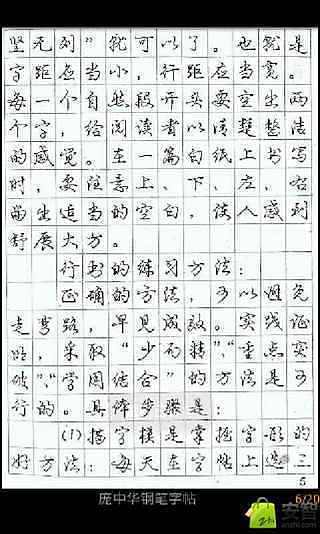 竖无列”就可以了。也就是
字距应当小，行距应当宽。
每一个自然段开头要空出两
个字，给阅读者以清楚整洁
的感觉。在一篇白纸上书写
时，要注意上、下、左、右
留出适当的空白，使人感到
舒展大方。
行书的练习方法：
正确的方法，可以避免
走弯路，早见成效。实践证
明，采取“少而精”、“重点突
破”、“学用结合”的方法是可
行的。具体步骤是：
(1)描字模是掌握字形的
好方法：每天在字帖上选三
5
庞中华钢笔字帖
6/20
安智
anzhi.com